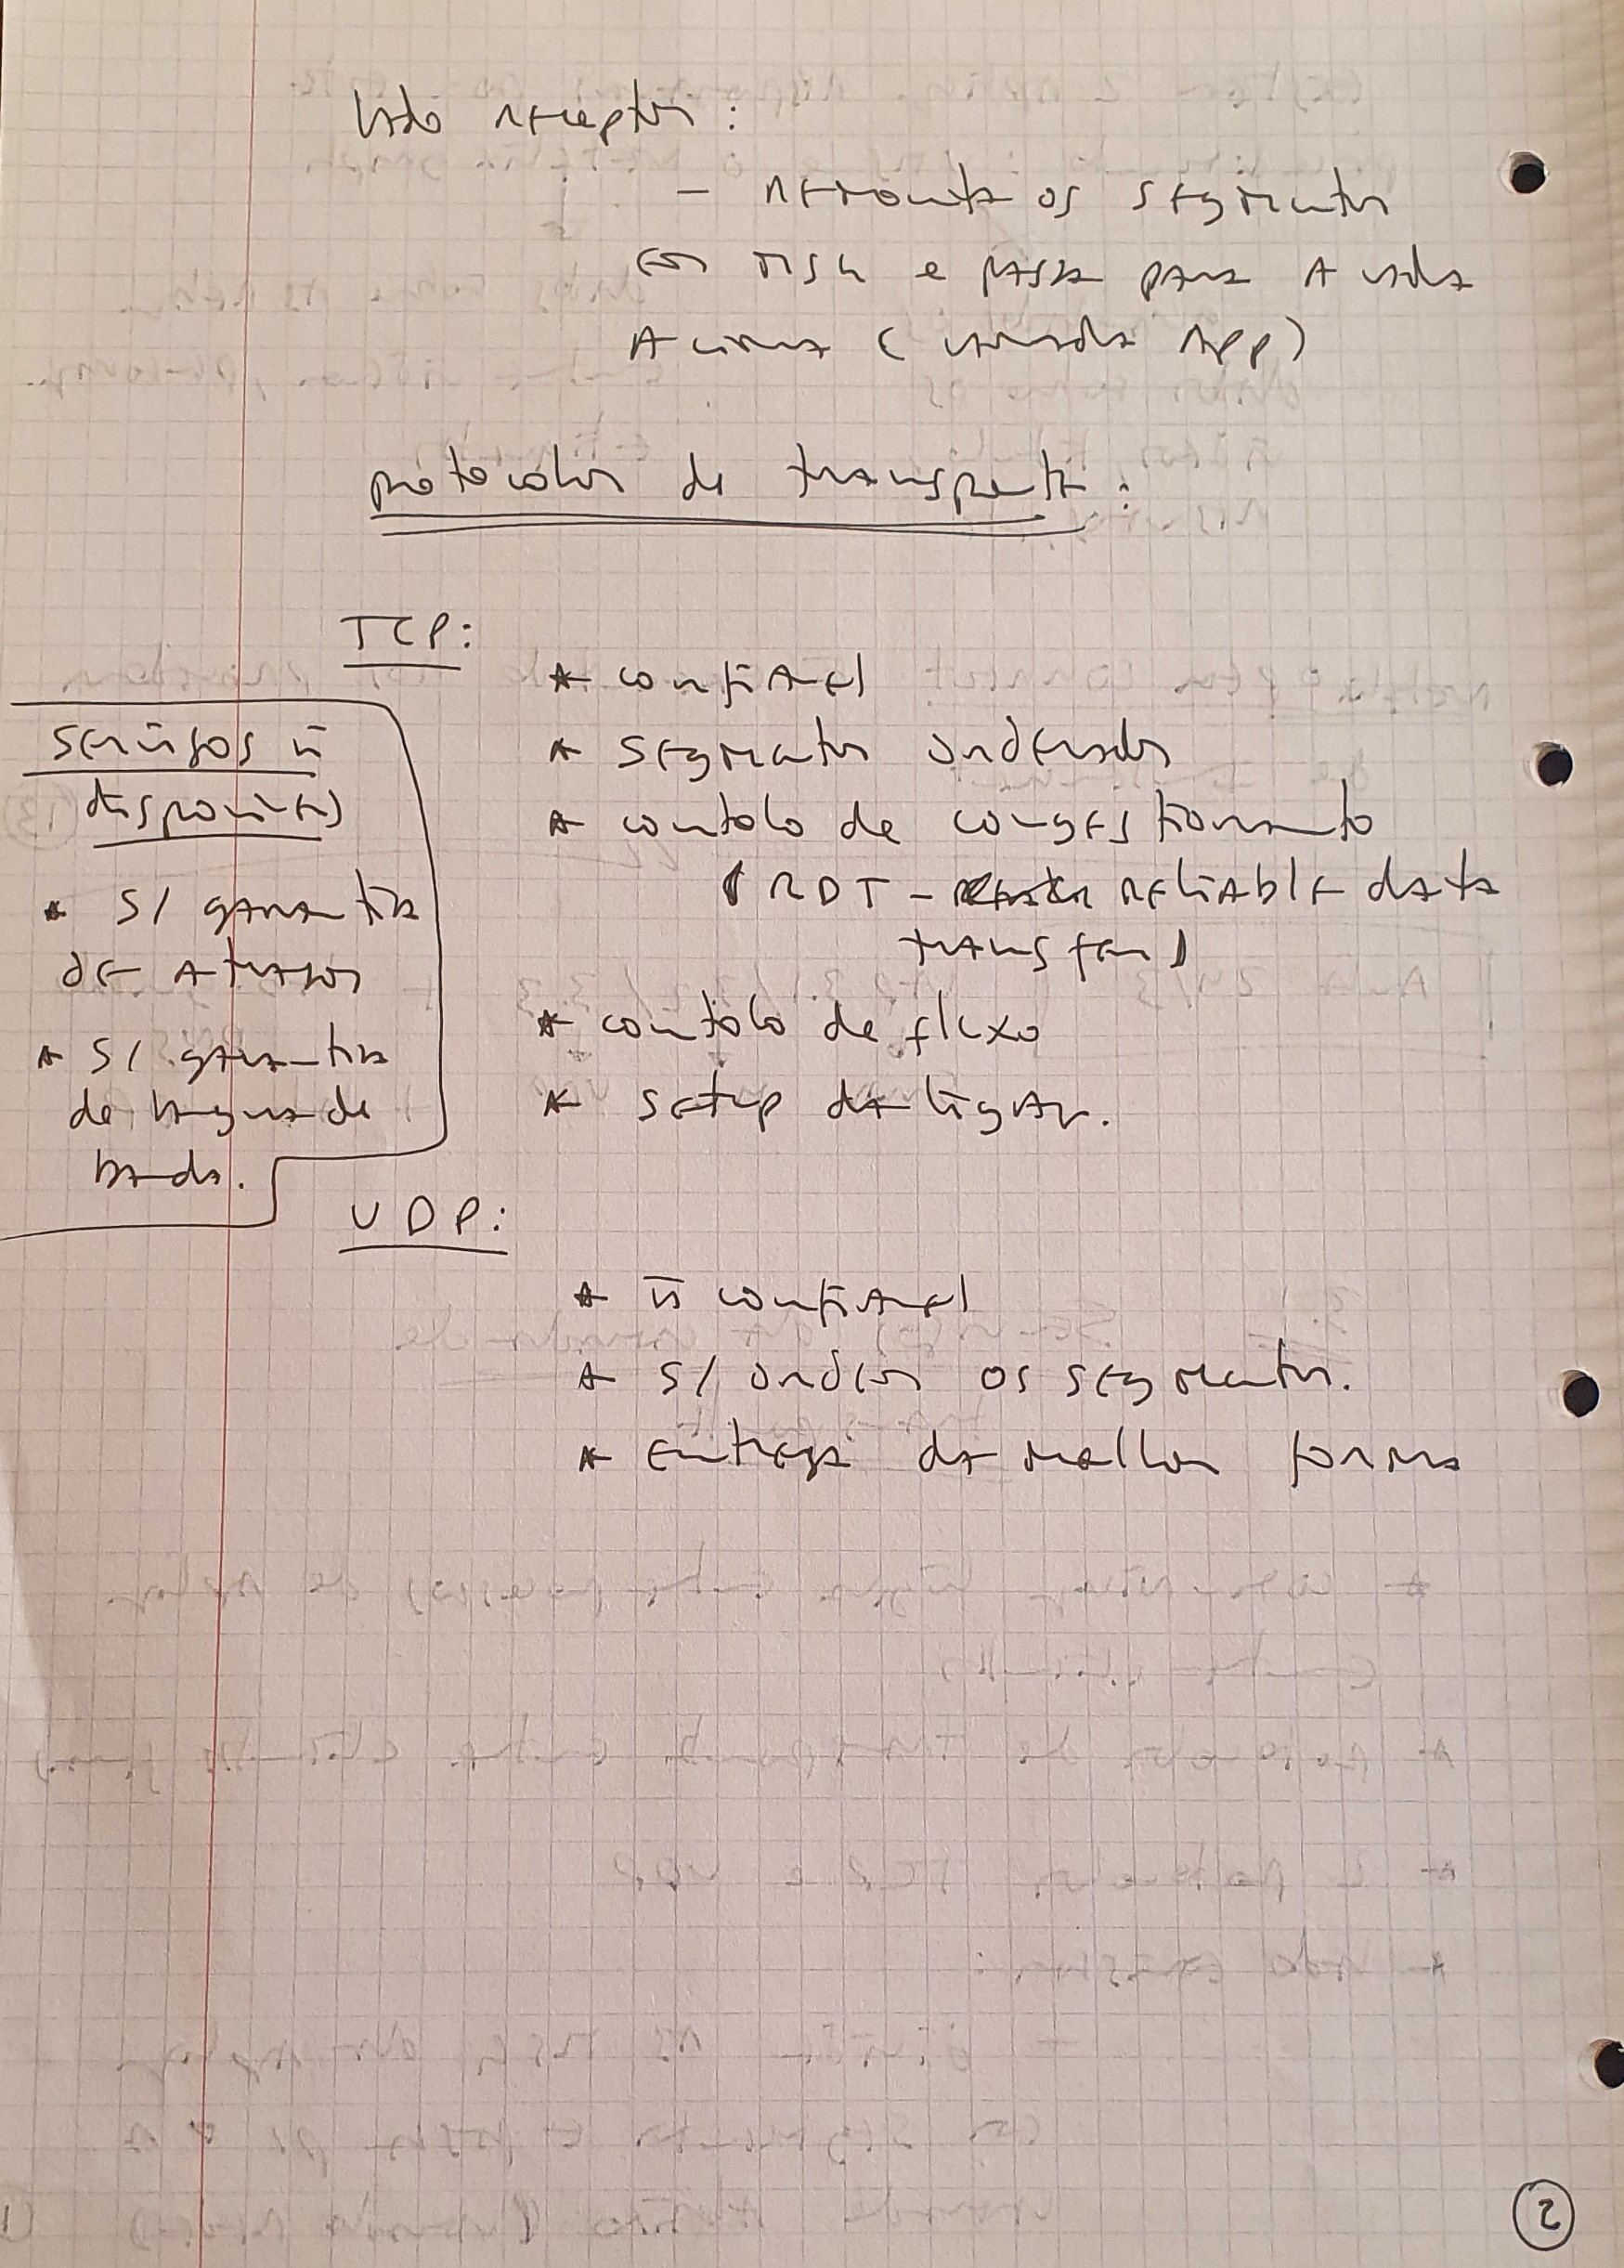 lado receptor:
- remonta os segmentos
em msg e passa para a cada
acima (camada App)
protocolos de transporte:
TCP:
* confiável
* segmentos ordenados
* controlo de congestionamento
(RDT - reliable data
transfer)
* controlo de fluxo
* setup da ligaç.
serviços ñ
disponíveis
* s/ garantia
de atrasos
* s/ garantia
de largura de
banda.
UDP:
* ñ confiável
* s/ ordem os segmentos.
* entrega da melhor forma
2